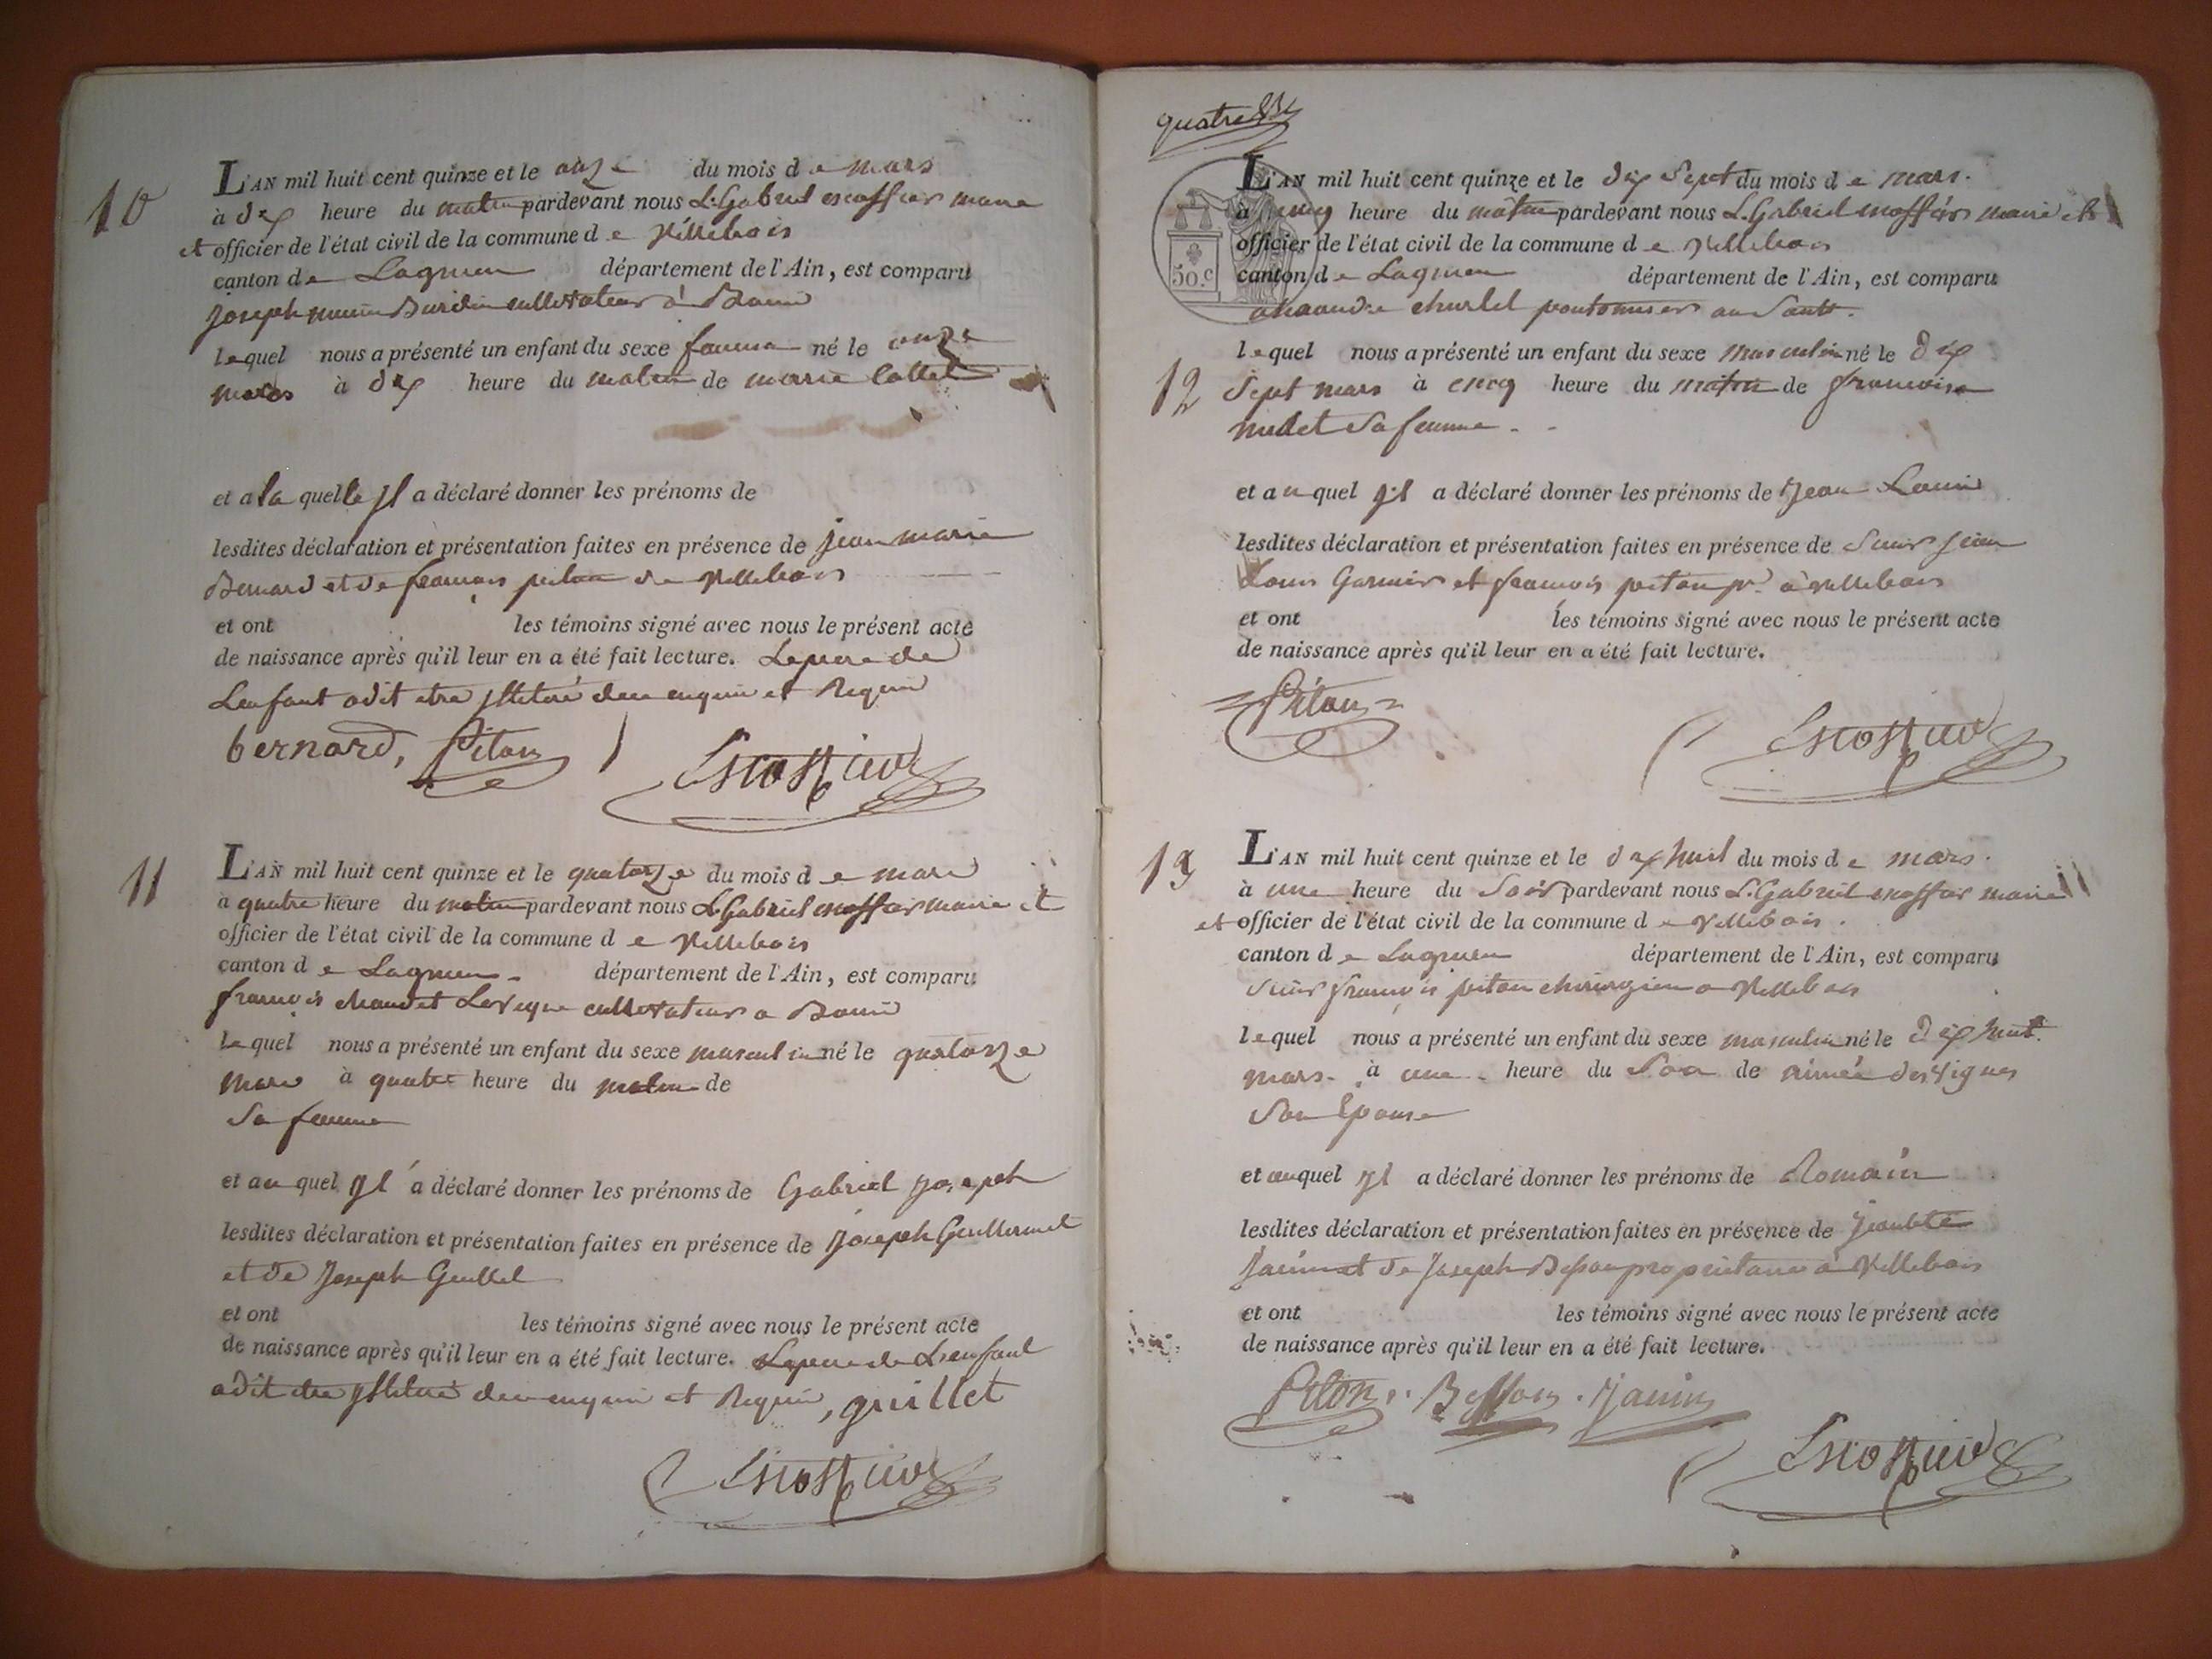 10
L'AN mil huit cent quinze et le onze du mois de mars
à dix heure du matin pardevant nous L. Gabriel escoffier maire
et officier de l'état civil de la commune de Villebois
canton de Lagnieu département de l'Ain, est comparu
joseph Burdin cultivateur à Bouis
lequel nous a présenté un enfant du sexe né le onze
mars à dix heure du matin de marie
et a la quelle jl a déclaré donner les prénoms de
lesdites déclaration et présentation faites en présence de jean marie
Bernard et de francois piton de Villebois
et ont les témoins signé avec nous le présent acte
de naissance après qu'il leur en a été fait lecture. Le pere de
Lenfant adit etre jlletéré de ce enquis et Requis
bernard, Piton Escoffier
11
L'AN mil huit cent quinze et le quatorze du mois de mars
à quatre heure du matin pardevant nous L. Gabriel escoffier maire et
officier de l'état civil de la commune de Villebois
canton de Lagnieu département de l'Ain, est comparu
françois chaudet Leveque cultivateur a Bouis
lequel nous a présenté un enfant du sexe masculin né le quatorze
mars à quatre heure du matin de
Sa femme
et au quel yl a déclaré donner les prénoms de Gabriel joseph
lesdites déclaration et présentation faites en présence de joseph Guillermet
et de Joseph Guillet
et ont les témoins signé avec nous le présent acte
de naissance après qu'il leur en a été fait lecture. Le pere de Lenfant
adit etre jlletéré de ce enquis et Requis, guillet
Escoffier
quatre
L'AN mil huit cent quinze et le dix Sept du mois de mars.
à cinq heure du matin pardevant nous L. Gabriel escoffier maire et
officier de l'état civil de la commune de Villebois
50.c canton de Lagnieu département de l'Ain, est comparu
au Sault.
lequel nous a présenté un enfant du sexe masculin né le dix
12 Sept mars à cinq heure du matin de francoise
Sa femme
et au quel yl a déclaré donner les prénoms de Jean Louis
lesdites déclaration et présentation faites en présence de Sieur jean
Louis Garnier et francois piton pre à Villebois
et ont les témoins signé avec nous le présent acte
de naissance après qu'il leur en a été fait lecture.
Piton
Escoffier
13
L'AN mil huit cent quinze et le dix huit du mois de mars.
à une heure du Soir pardevant nous L. Gabriel escoffier maire
et officier de l'état civil de la commune de Villebois.
canton de Lagnieu département de l'Ain, est comparu
Sieur françois piton chirurgien a Villebois
lequel nous a présenté un enfant du sexe masculin né le dix huit
mars à une heure du Soir de aimée desvignes
Son Epouse
et auquel yl a déclaré donner les prénoms de Romain
lesdites déclaration et présentation faites en présence de jean bte
Janin et de Joseph Besson proprietaires a Villebois
et ont les témoins signé avec nous le présent acte
de naissance après qu'il leur en a été fait lecture.
Piton. Besson. Janin
Escoffier